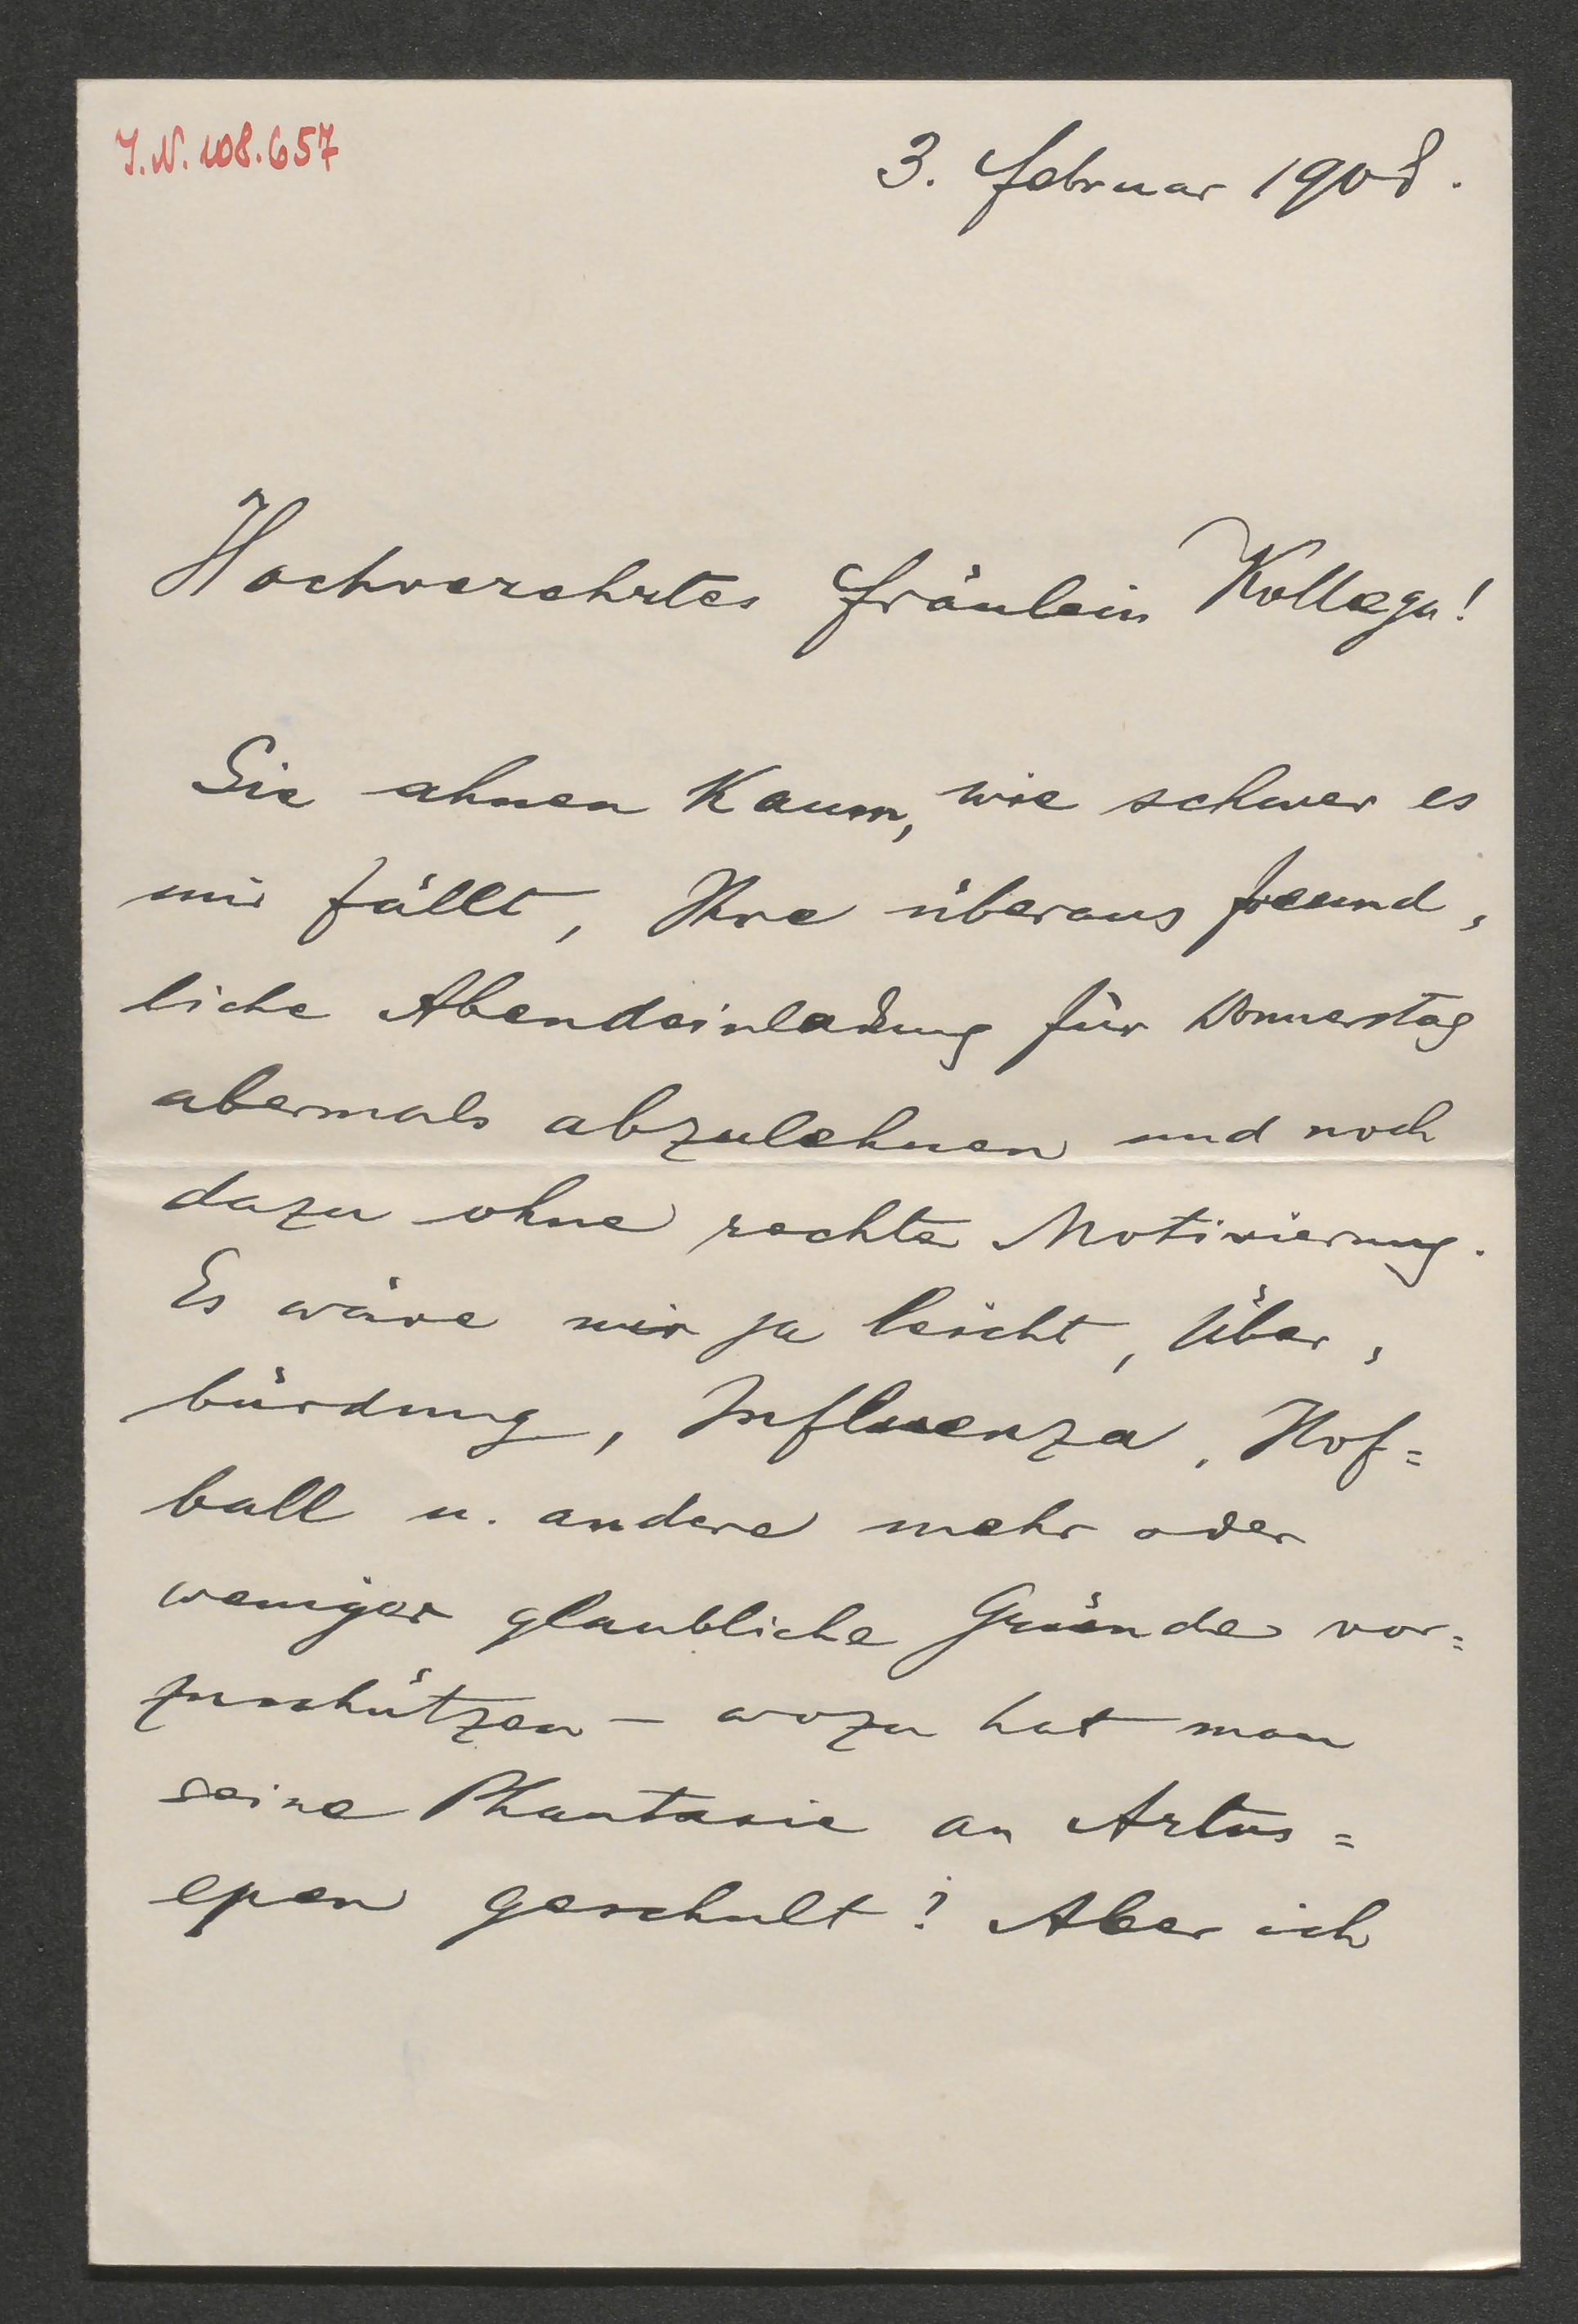 I.N. 108.657
3. Februar 1908.
Hochverehrtes Fräulein Kollega!
Sie ahnen kaum, wie schwer es
mir fällt, Ihre überaus freund,
liche Abendeinladung für Donnerstag
abermals abzulehnen und noch
dazu ohne rechte Motivierung.
Es wäre mir ja leicht, Über,
bürdung, Influenza, Hof=
ball u. andere mehr oder
weniger glaubliche Gründe vor=
zuschützen – wozu hat man
seine Phantasie an Artus=
epen geschult? Aber ich